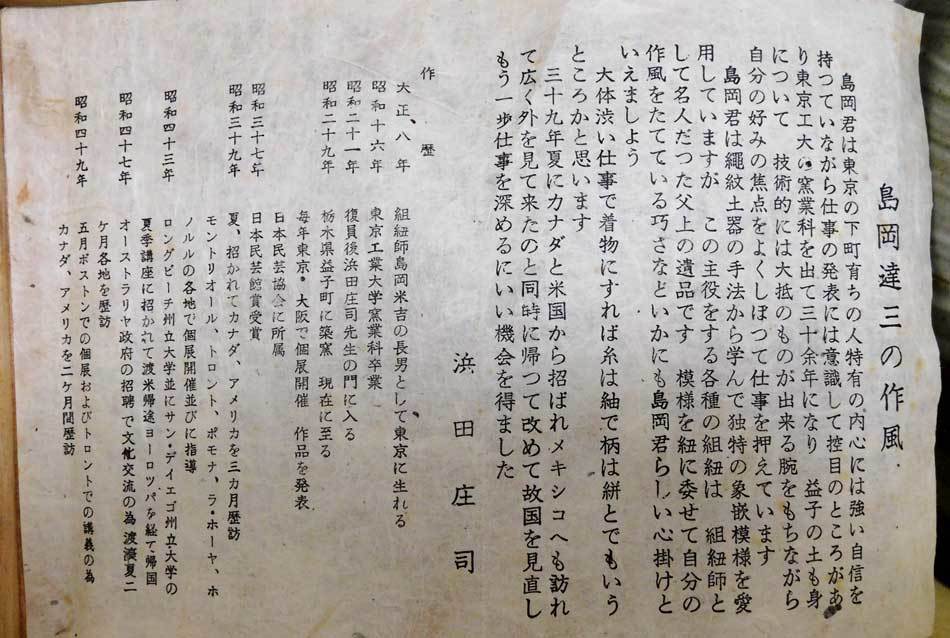 島岡達三の作風
島岡君は東京の下町育ちの人特有の内心には強い自信を
持つていながら仕事の発表には意識して控目のところがあ
り東京工大の窯業科を出て三十余年になり　益子の土も身
について　技術的には大抵のものが出来る腕をもちながら
自分の好みの焦点をよくしぼつて仕事を押えています
島岡君は繩紋土器の手法から学んで独特の象嵌模様を愛
用していますが　この主役をする各種の組紐は　組紐師と
して名人だつた父上の遺品です　模様を紐に委せて自分の
作風をたてている巧さなどいかにも島岡君らしい心掛けと
いえましよう
大体渋い仕事で着物にすれば糸は紬で柄は絣とでもいう
ところかと思います
三十九年夏にカナダと米国から招ばれメキシコへも訪れ
て広く外を見て来たのと同時に帰つて改めて故国を見直し
もう一歩仕事を深めるにいい機会を得ました
浜田庄司
作歴
大正、八年　組紐師島岡米吉の長男として、東京に生れる
昭和十六年　東京工業大学窯業科卒業
昭和二十一年　復員後浜田庄司先生の門に入る
昭和二十九年　栃木県益子町に築窯　現在に至る
毎年東京・大阪で個展開催　作品を発表
日本民芸協会に所属
昭和三十七年　日本民芸館賞受賞
昭和三十九年　夏、招かれてカナダ、アメリカを三カ月歴訪
モントリオール、トロント、ポモナ、ラ・ホーヤ、ホ
ノルルの各地で個展開催並びに指導
昭和四十三年　ロングビーチ州立大学並にサン・デイエゴ州立大学の
夏季講座に招かれて渡米帰途ヨーロッパを経て帰国
昭和四十七年　オーストラリヤ政府の招聘で文化交流の為渡濠夏二
ケ月各地を歴訪
昭和四十九年　五月ボストンでの個展およびトロントでの講義の為
カナダ、アメリカを二ケ月間歴訪